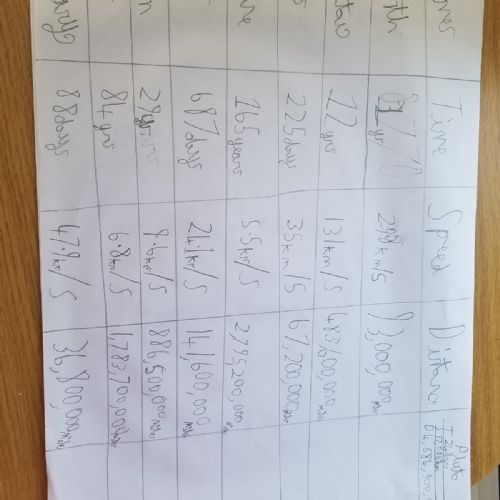 Time Speed Distance Pluto
yr 29.8 km/s 93,000,000 miles
12 yrs 13.1 km/s 483,600,000 miles
225 days 35 km/s 67,200,000 miles
165 years 5.5 km/s 2,795,200,000
687 days 24.1 km/s 141,600,000 miles
29 yrs 9.6 km/s 886,500,000 miles
84 yrs 6.8 km/s 1,783,700,000 miles
88 days 47.9 km/s 36,800,000 miles